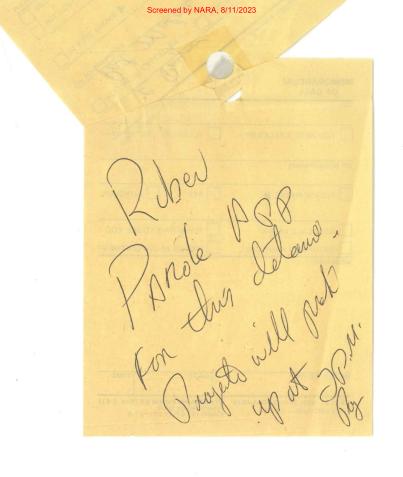 Screened by NARA, 8/11/2023
Ruben
Parole App
For this detainee.
Projects will pick
up at 3 P.M.